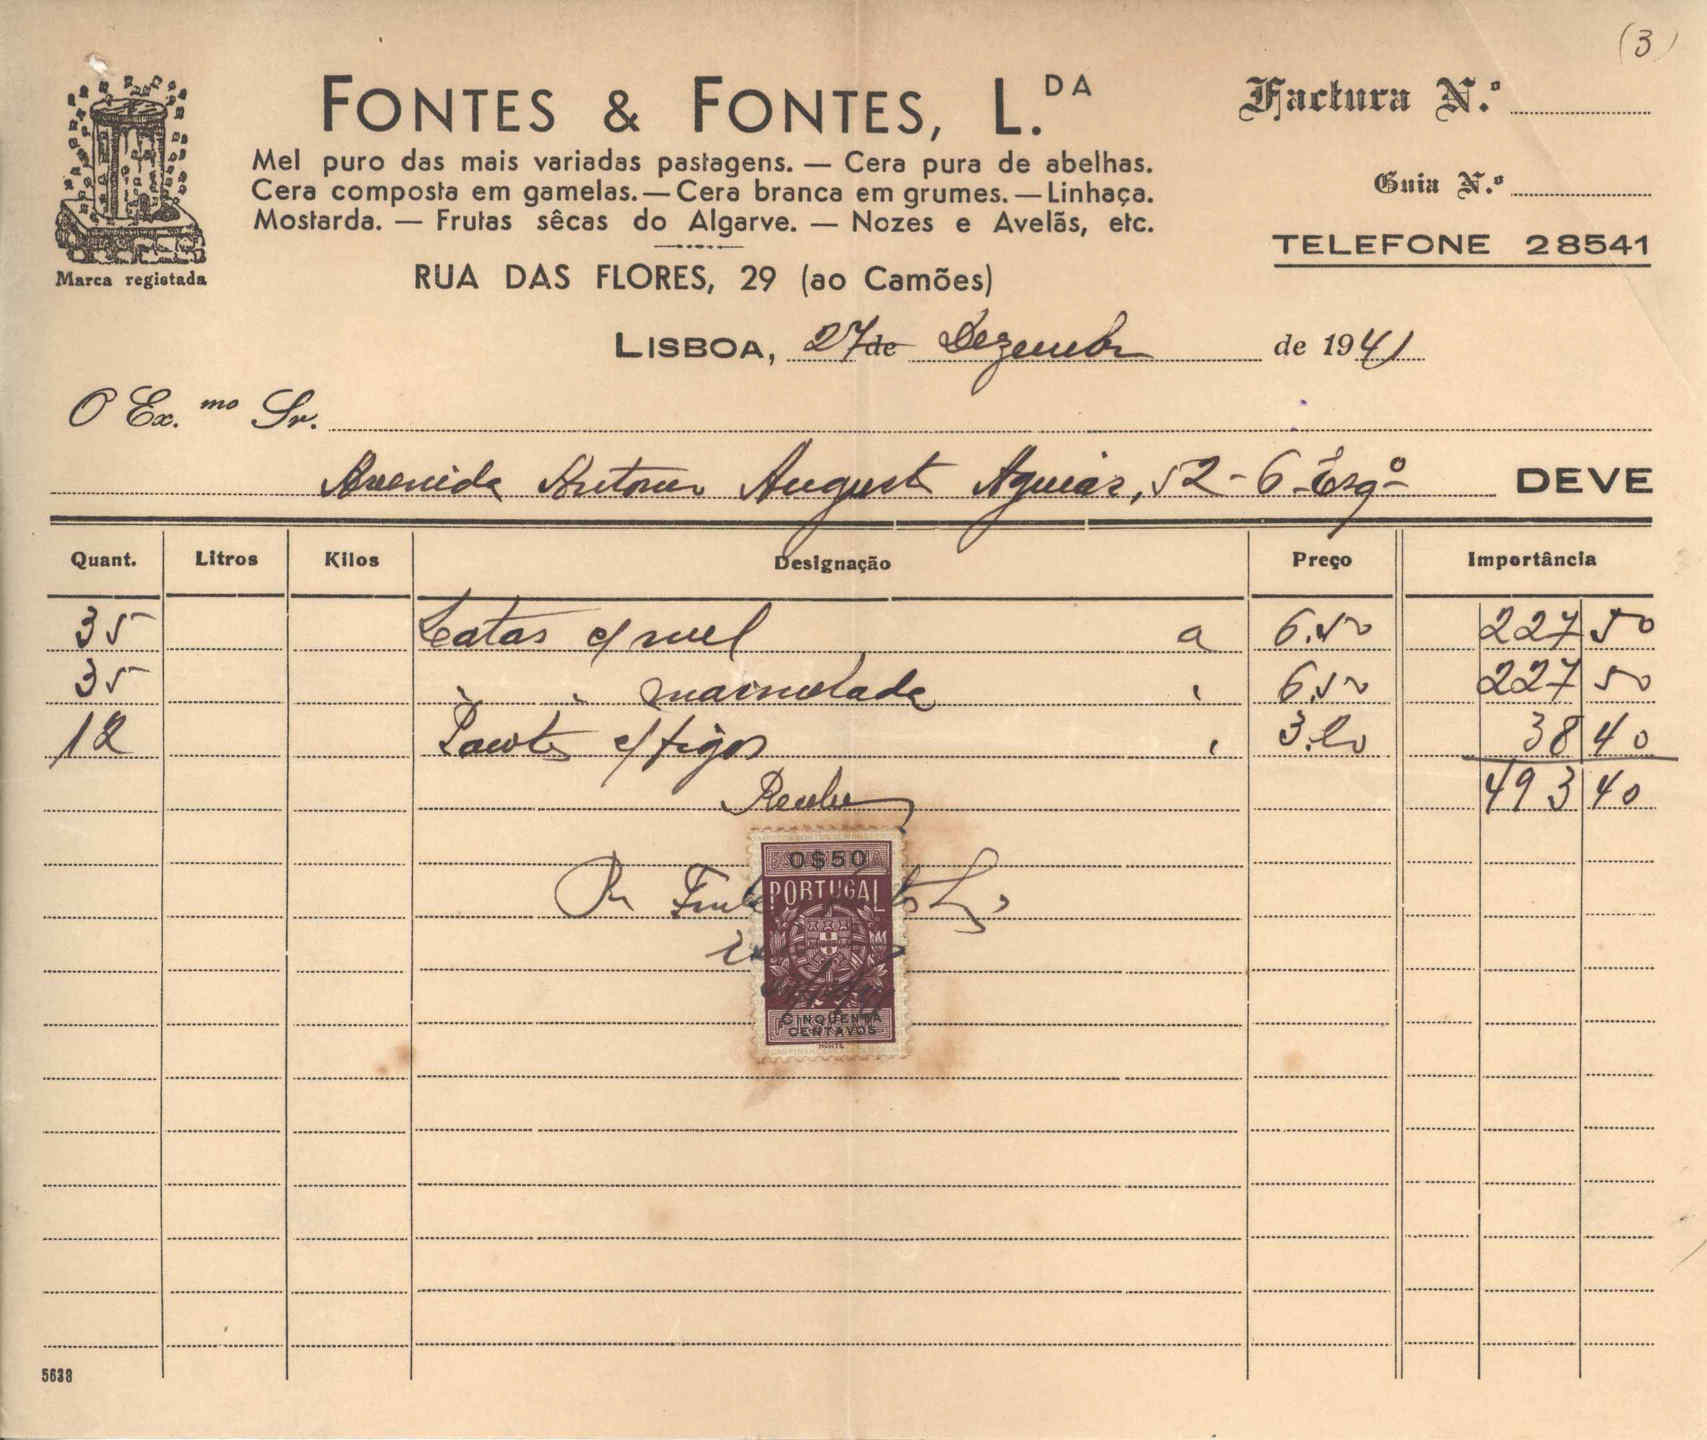 (3)
FONTES & FONTES, L.DA
Factura N.º
Mel puro das mais variadas pastagens. — Cera pura de abelhas.
Cera composta em gamelas. — Cera branca em grumes. — Linhaça.
Guia N.º
Mostarda. — Frutas sêcas do Algarve. — Nozes e Avelãs, etc.
TELEFONE 28541
Marca registada
RUA DAS FLORES, 29 (ao Camões)
LISBOA, 27 de Dezembro de 1941
O Ex.mo Sr.
Avenida Antonio Augusto Aguiar, 52-6º Esqº DEVE
Quant. Litros Kilos Designação Preço Importância
35 Latas c/ mel a 6.50 227 50
35 " " marmelada " 6.50 227 50
12 c/ figos " 3.20 38 40
493 40
0$50
PORTUGAL
CINQUENTA
CENTAVOS
5638